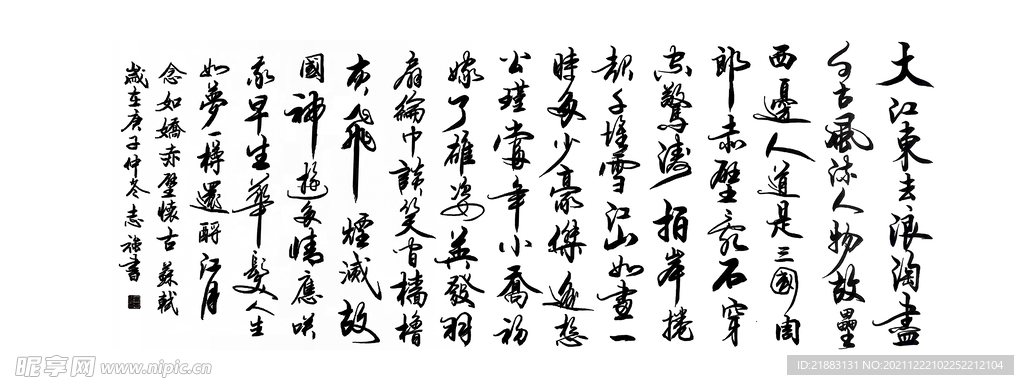 大江東去浪淘盡
千古風流人物故壘
西邊人道是三國周
郎赤壁亂石穿
空驚濤拍岸捲
起千堆雪江山如畫一
時多少豪傑遙想
公瑾當年小喬初
嫁了雄姿英發羽
扇綸巾談笑間檣櫓
灰飛煙滅故
國神遊多情應笑
我早生華髮人生
如夢一樽還酹江月
念如嬌赤壁懷古 蘇軾
歲在庚子仲冬志書
昵享网 www.nipic.cn
ID:21883131 NO:20211222102252212104